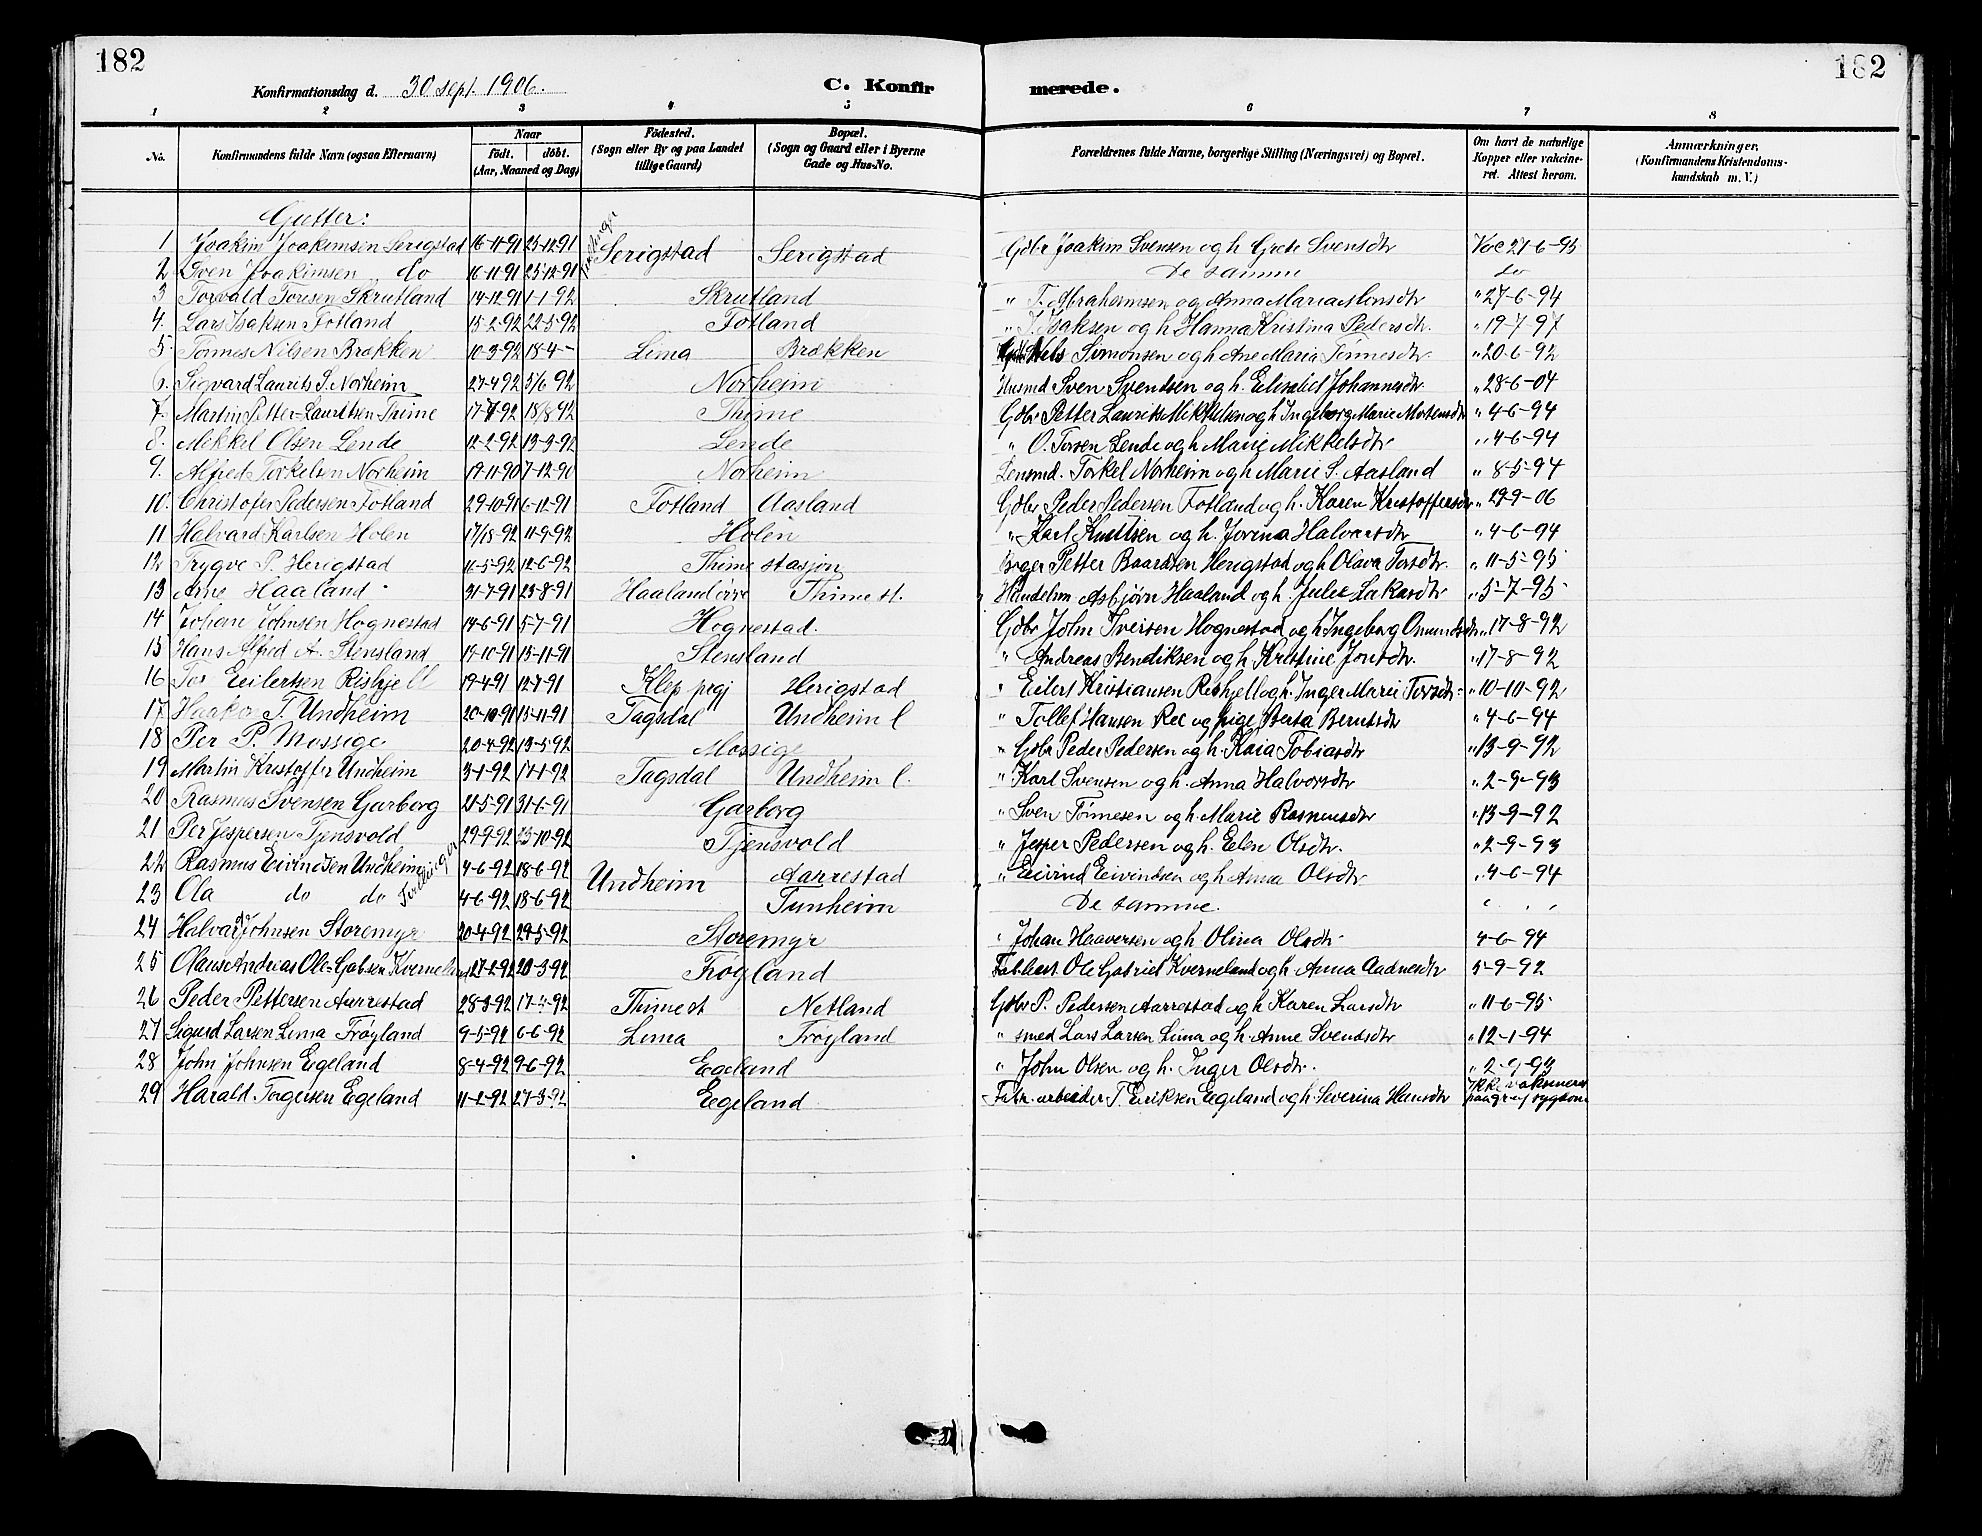 182
182
Konfirmationsdag d. 30 sept. 1906.
C. Konfirmerede.
1 2 3 4 5 6 7 8
No.
Konfirmandens fulde Navn (ogsaa Efternavn)
Naar
födt.
döbt.
(Aar, Maaned og Dag)
Födested.
(Sogn eller By og paa Landet
tillige Gaard)
Bopæl.
(Sogn og Gaard eller i Byerne
Gade og Hus-No.
Forældrenes fulde Navne, borgerlige Stilling (Næringsvei) og Bopæl.
Om havt de naturlige
Kopper eller vakcine-
ret. Attest herom.
Anmærkninger.
(Konfirmandens Kristendoms-
kundskab m. V.)
Gutter:
1 Joakim Joakimsen Serigstad 16-11-91 25-12-91 Serigstad Serigstad Gdbr Joakim Svensen og h Grete Svensdtr Vac 27-6-95
2 Sven Joakimsen do 16-11-91 25-12-91 De samme do
3 Torvald Toresen Skrutland 14-12-91 1-1-92 Skrutland " T. Abrahamsen og Anna Maria Monsdtr " 27-6-94
4. Lars Isaksen Fotland 15-2-92 22-5-92 Fotland " I. Isaksen og h Hanna Kristina Pedersdtr. " 19-7-97
5. Tønnes Nilsen Brækken 10-3-92 18-4- Lima Brækken Nils Simonsen og h Ane Maria Tønnesdtr. " 20-6-92
6. Sigvard Laurits S. Norheim 27-4-92 5/6 92 Norheim Husmd Sven Svendsen og h. Elisabet Johannesdtr " 28-6-04
7. Martin Petter-Lauritsen Thime 17-7-92 18/8 92 Thime Gdbr Petter Laurits Mikkelsen og h Ingeborg Marie Mortensdtr " 4-6-94
8. Mikkel Olsen Lende 12-2-92 13-3-92 Lende " O. Torsen Lende og h Marie Mikkelsdtr " 4-6-94
9. Alfred Torkelsen Norheim 19-11-90 7-12-90 Norheim Lensmd. Torkel Norheim og h Marie S. Aasland " 8-5-94
10. Christofer Pedersen Fotland 29-10-91 6-12-91 Fotland Aasland Gdbr Peder Pedersen Fotland og h. Karen Kristoffersdtr " 29-9-06
11 Halvard Karlsen Holen 17/18-92 11-9-92 Holen " Karl Knutsen og h. Jorina Halvorsdtr " 4-6-94
12 Trygve P. Herigstad 16-5-92 12-6-92 Thime stasjon Bager Petter Baardsen Herigstad og h Olava Torsdtr. " 11-5-95
13 Arne Haaland 31-7-91 23-8-91 Haaland i Thime st. Handelsm Asbjørn Haaland og h. Julie Lukasdtr " 5-7-95
14 Johan Johnsen Hognestad 14-6-91 5-7-91 Hognestad. Gdbr John Iversen Hognestad og h Ingeborg Omundsdtr " 17-8-92
15 Hans Alfred A. Stensland 19-10-91 15-11-91 Stensland " Andreas Bendiksen og h Kristine Jonsdtr. " 17-8-92
16 Tor Eilertsen Risfjell 19-4-91 12-7-91 Klep prgj Herigstad " Eilert Kristiansen og h. Inger Marie Torsdtr. " 10-10-92
17 Haakon T. Undheim 20-10-91 15-11-91 Tagsdal Undheim l " Tollef Hansen Ree og pige Berta Berntsdtr " 4-6-94
18 Per P. Mossige 20-4-92 13-5-92 Mossige " Gdbr Peder Pedersen og h. Kaia Tobiasdtr " 13-9-92
19 Martin Kristoffer Undheim 3-1-92 17-1-92 Tagsdal Undheim l. " Karl Svensen og h. Anna Halvorsdtr " 2-9-93
20 Rasmus Svensen Garborg 21-5-91 31-6-91 Garborg " Sven Tønnesen og h. Marie Rasmusdtr " 13-9-92
21 Per Jespersen Tjensvold 29-9-92 23-10-92 Tjensvold " Jesper Pedersen og h. Elen Olsdtr. " 2-9-93
22 Rasmus Eivindsen Undheim 4-6-92 18-6-92 Undheim Aarrestad " Eivind Eivindsen og h Anna Olsdtr " 4-6-94
23 Ola do do Tvillinger 4-6-92 18-6-92 Tunheim De samme. " " "
24 Halvard Johnsen Storemyr 20-4-92 29-5-92 Storemyr " Johan Haaversen og h Olina Olsdtr. 4-6-94
25 Olaus Andreas Ole-Gabsen Kverneland 27-2-92 20-3-92 Frøyland Fabbest. Ole Gabriel Kverneland og h Anna Aadnesdtr 5-9-92
26 Peder Pettersen Aarrestad 28-3-92 17-4-92 Thime st Netland Gdbr P. Pedersen Aarrestad og h Karen Larsdtr " 11-6-95
27 Sigurd Larsen Lima Frøyland 9-5-92 6-6-92 Lima Frøyland " smed Lars Larsen Lima og h. Anne Svendsdtr " 12-1-94
28 John Johnsen Egeland 8-4-92 9-6-92 Egeland " John Olsen og h. Inger Olsdtr. " 2-9-93
29 Harald Torgersen Egeland 11-2-92 27-3-92 Egeland Fabr. arbeider T. Eriksen Egeland og h. Severina Hansdtr Ikke vaksineret
paagr af sygdom